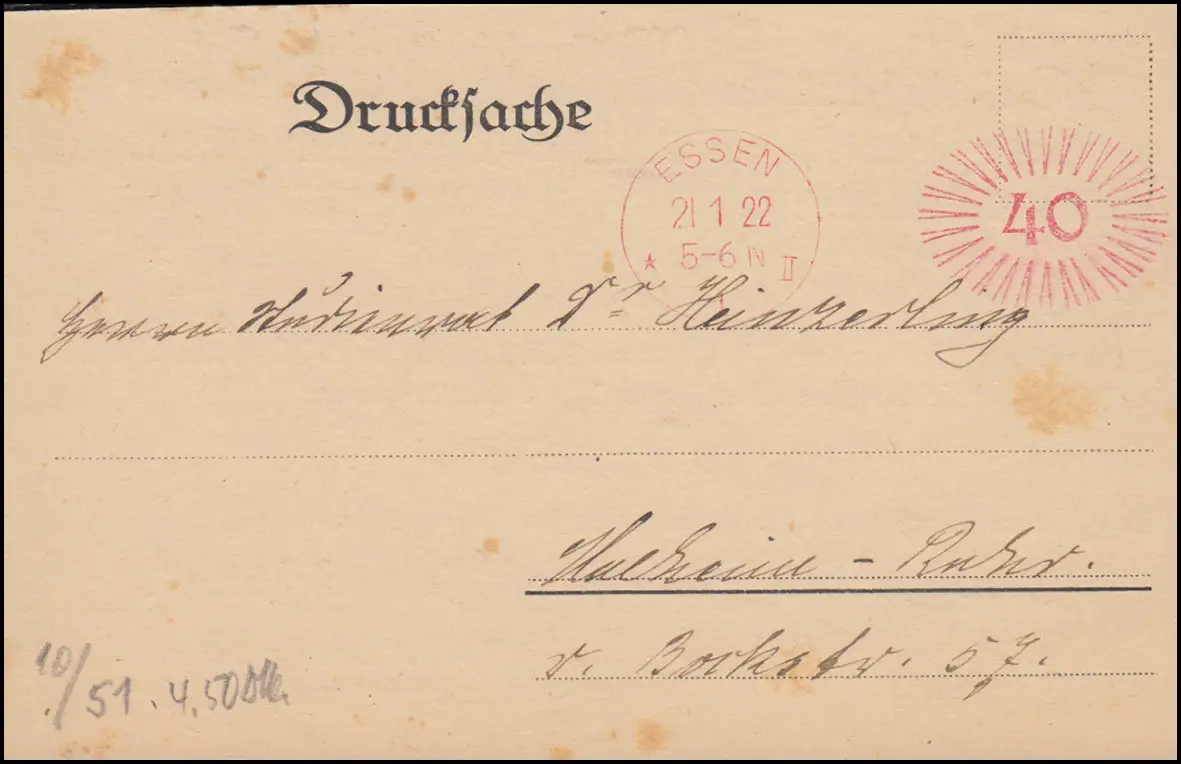 Drucksache
ESSEN
21 1 22
5-6 N
* II
1
40
Herrn Studienrat Dr Heinzerling
Mülheim - Ruhr.
v. Bockstr. 57.
10/
51. 4,50